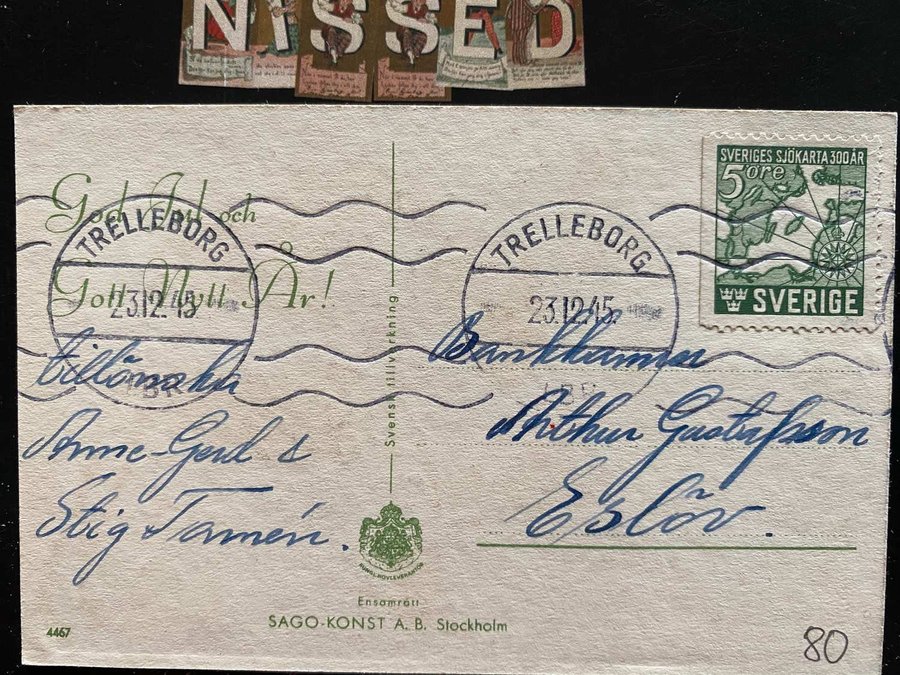 NISSED
God Jul och
Gott Nytt År!
TRELLEBORG
23.12.45
tillönska
Anne-Gerd &
Stig Tornéri.
Svensk tillverkning
KUNGL. HOVLEVERANTÖR
Ensamrätt
SAGO-KONST A. B. Stockholm
4467
TRELLEBORG
23.12.45.
SVERIGES SJÖKARTA 300 ÅR
5 öre
SVERIGE
Arthur Gustafsson
Eslöv.
80